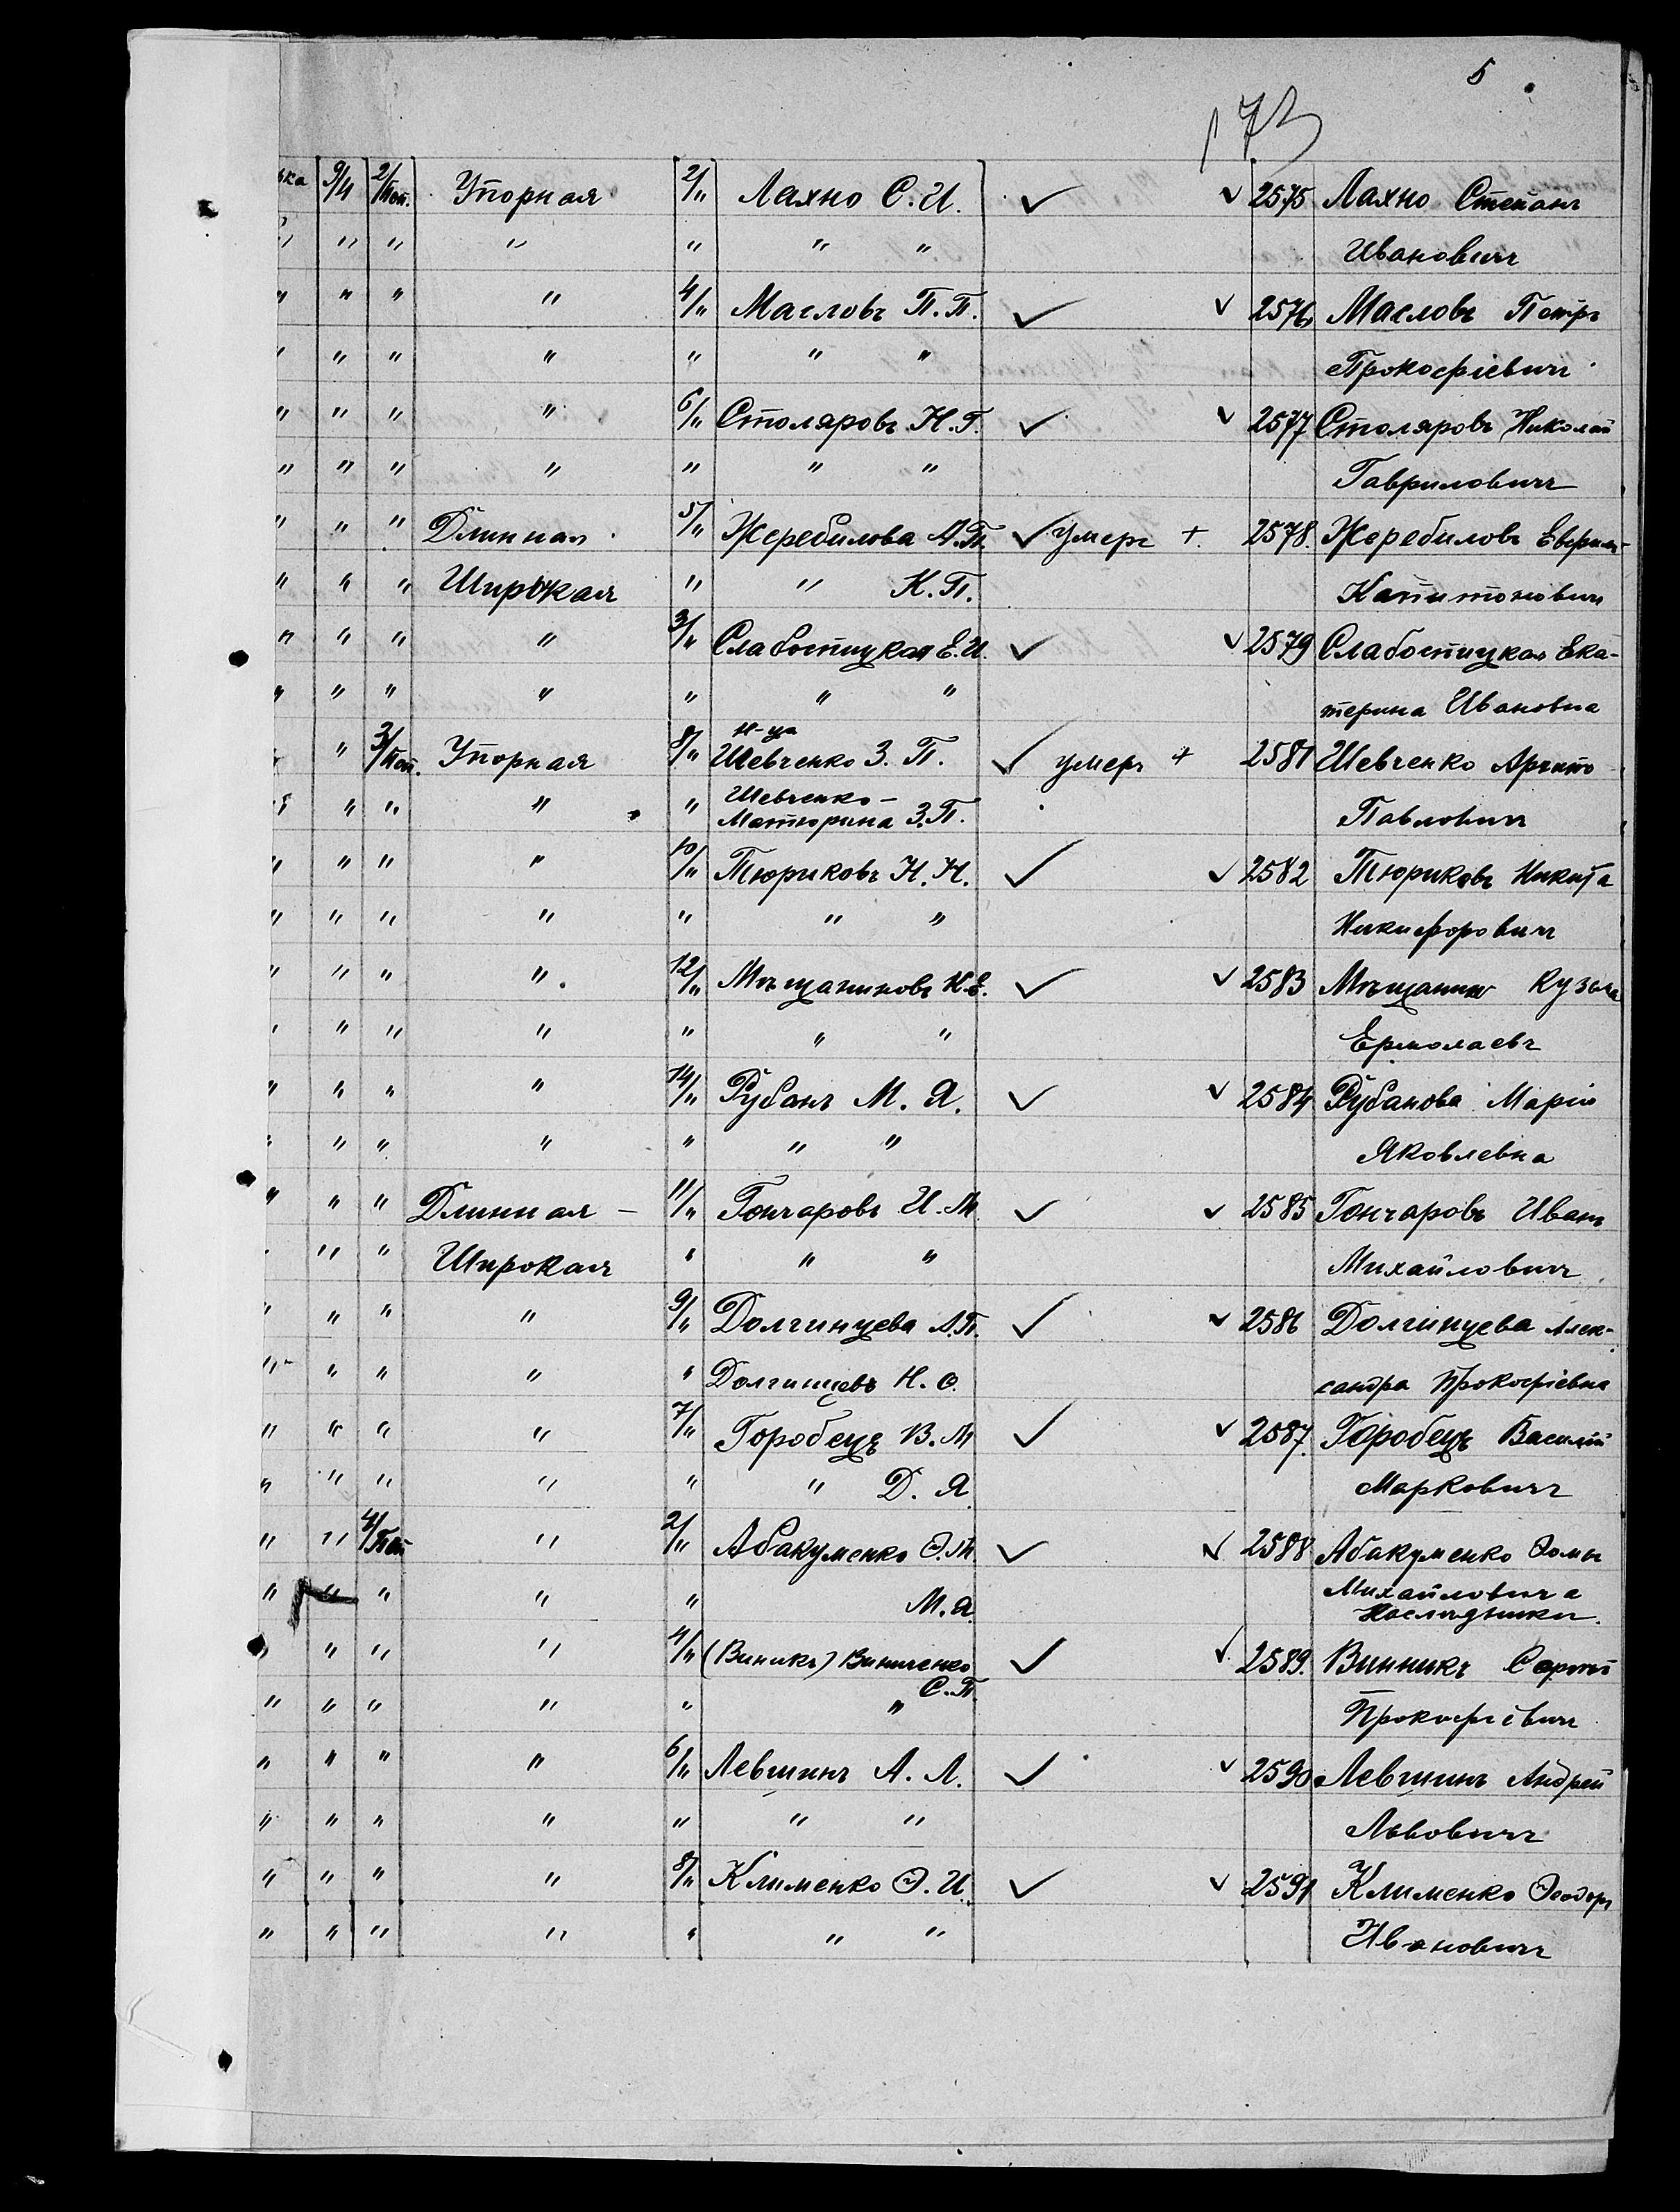 5
173
ька 9/11 2/Поп. Упорная 2/" Лахно С. И. ✓ ✓ 2575 Лахно Степанъ
" " " " " " " Ивановичъ
" " " " 4/" Масловъ П. П. ✓ ✓ 2576 Масловъ Петръ
" " " " " " " Прокофіевичъ
" " " " 6/" Столяровъ Н. Г. ✓ ✓ 2577 Столяровъ Николай
" " " " " " " Гавриловичъ
" " " Длинная 5/" Жеребилова А. П. ✓ умеръ + 2578. Жеребиловъ
" " " Широкая " " К. П. Капитоновичъ
" " " " 3/" Слабостицкая Е. И. ✓ ✓ 2579 Слабостицкая Ека-
" " " " " " " терина Ивановна
" " 3/Поп. Упорная 8/" н-ца Шевченко З. П. ✓ умеръ + 2581 Шевченко
" " " " " Шевченко-Матюрина З. П. Павловичъ
" " " " 10/" Тюриковъ Н. Н. ✓ ✓ 2582 Тюриковъ Никита
" " " " " " " Никифоровичъ
" " " " 12/" Мѣщаниновъ К. Е. ✓ ✓ 2583 Мѣщанинъ Кузьма
" " " " " " " Ермолаевъ
" " " " 14/" Рубанъ М. Я. ✓ ✓ 2584 Рубанова Марія
" " " " " " " Яковлевна
" " " Длинная - 11/" Гончаровъ И. М. ✓ ✓ 2585 Гончаровъ Иванъ
" " " Широкая " " " Михайловичъ
" " " " 9/" Долгинцева А. П. ✓ ✓ 2586 Долгинцева Алек-
" " " " " Долгинцевъ Н. Ѳ. сандра Прокофіевна
" " " " 7/" Горобецъ В. М. ✓ ✓ 2587. Горобецъ Василій
" " " " " " Д. Я. Марковичъ
" " 4/Поп " 2/" Абакуменко Ѳ. М. ✓ ✓ 2588 Абакуменко Ѳомы
" " " " " М. Я. Михайловича Наслѣдники.
" " " " 4/" (Виникъ) Виниченко С. П. ✓ ✓ 2589. Винникъ Сергѣй
" " " " " " Прокофіевичъ
" " " " 6/" Левшинъ А. Л. ✓ ✓ 2590 Левшинъ Андрей
" " " " " " " Львовичъ
" " " " 8/" Клименко Ѳ. И. ✓ ✓ 2591 Клименко Ѳеодоръ
" " " " " " " Ивановичъ